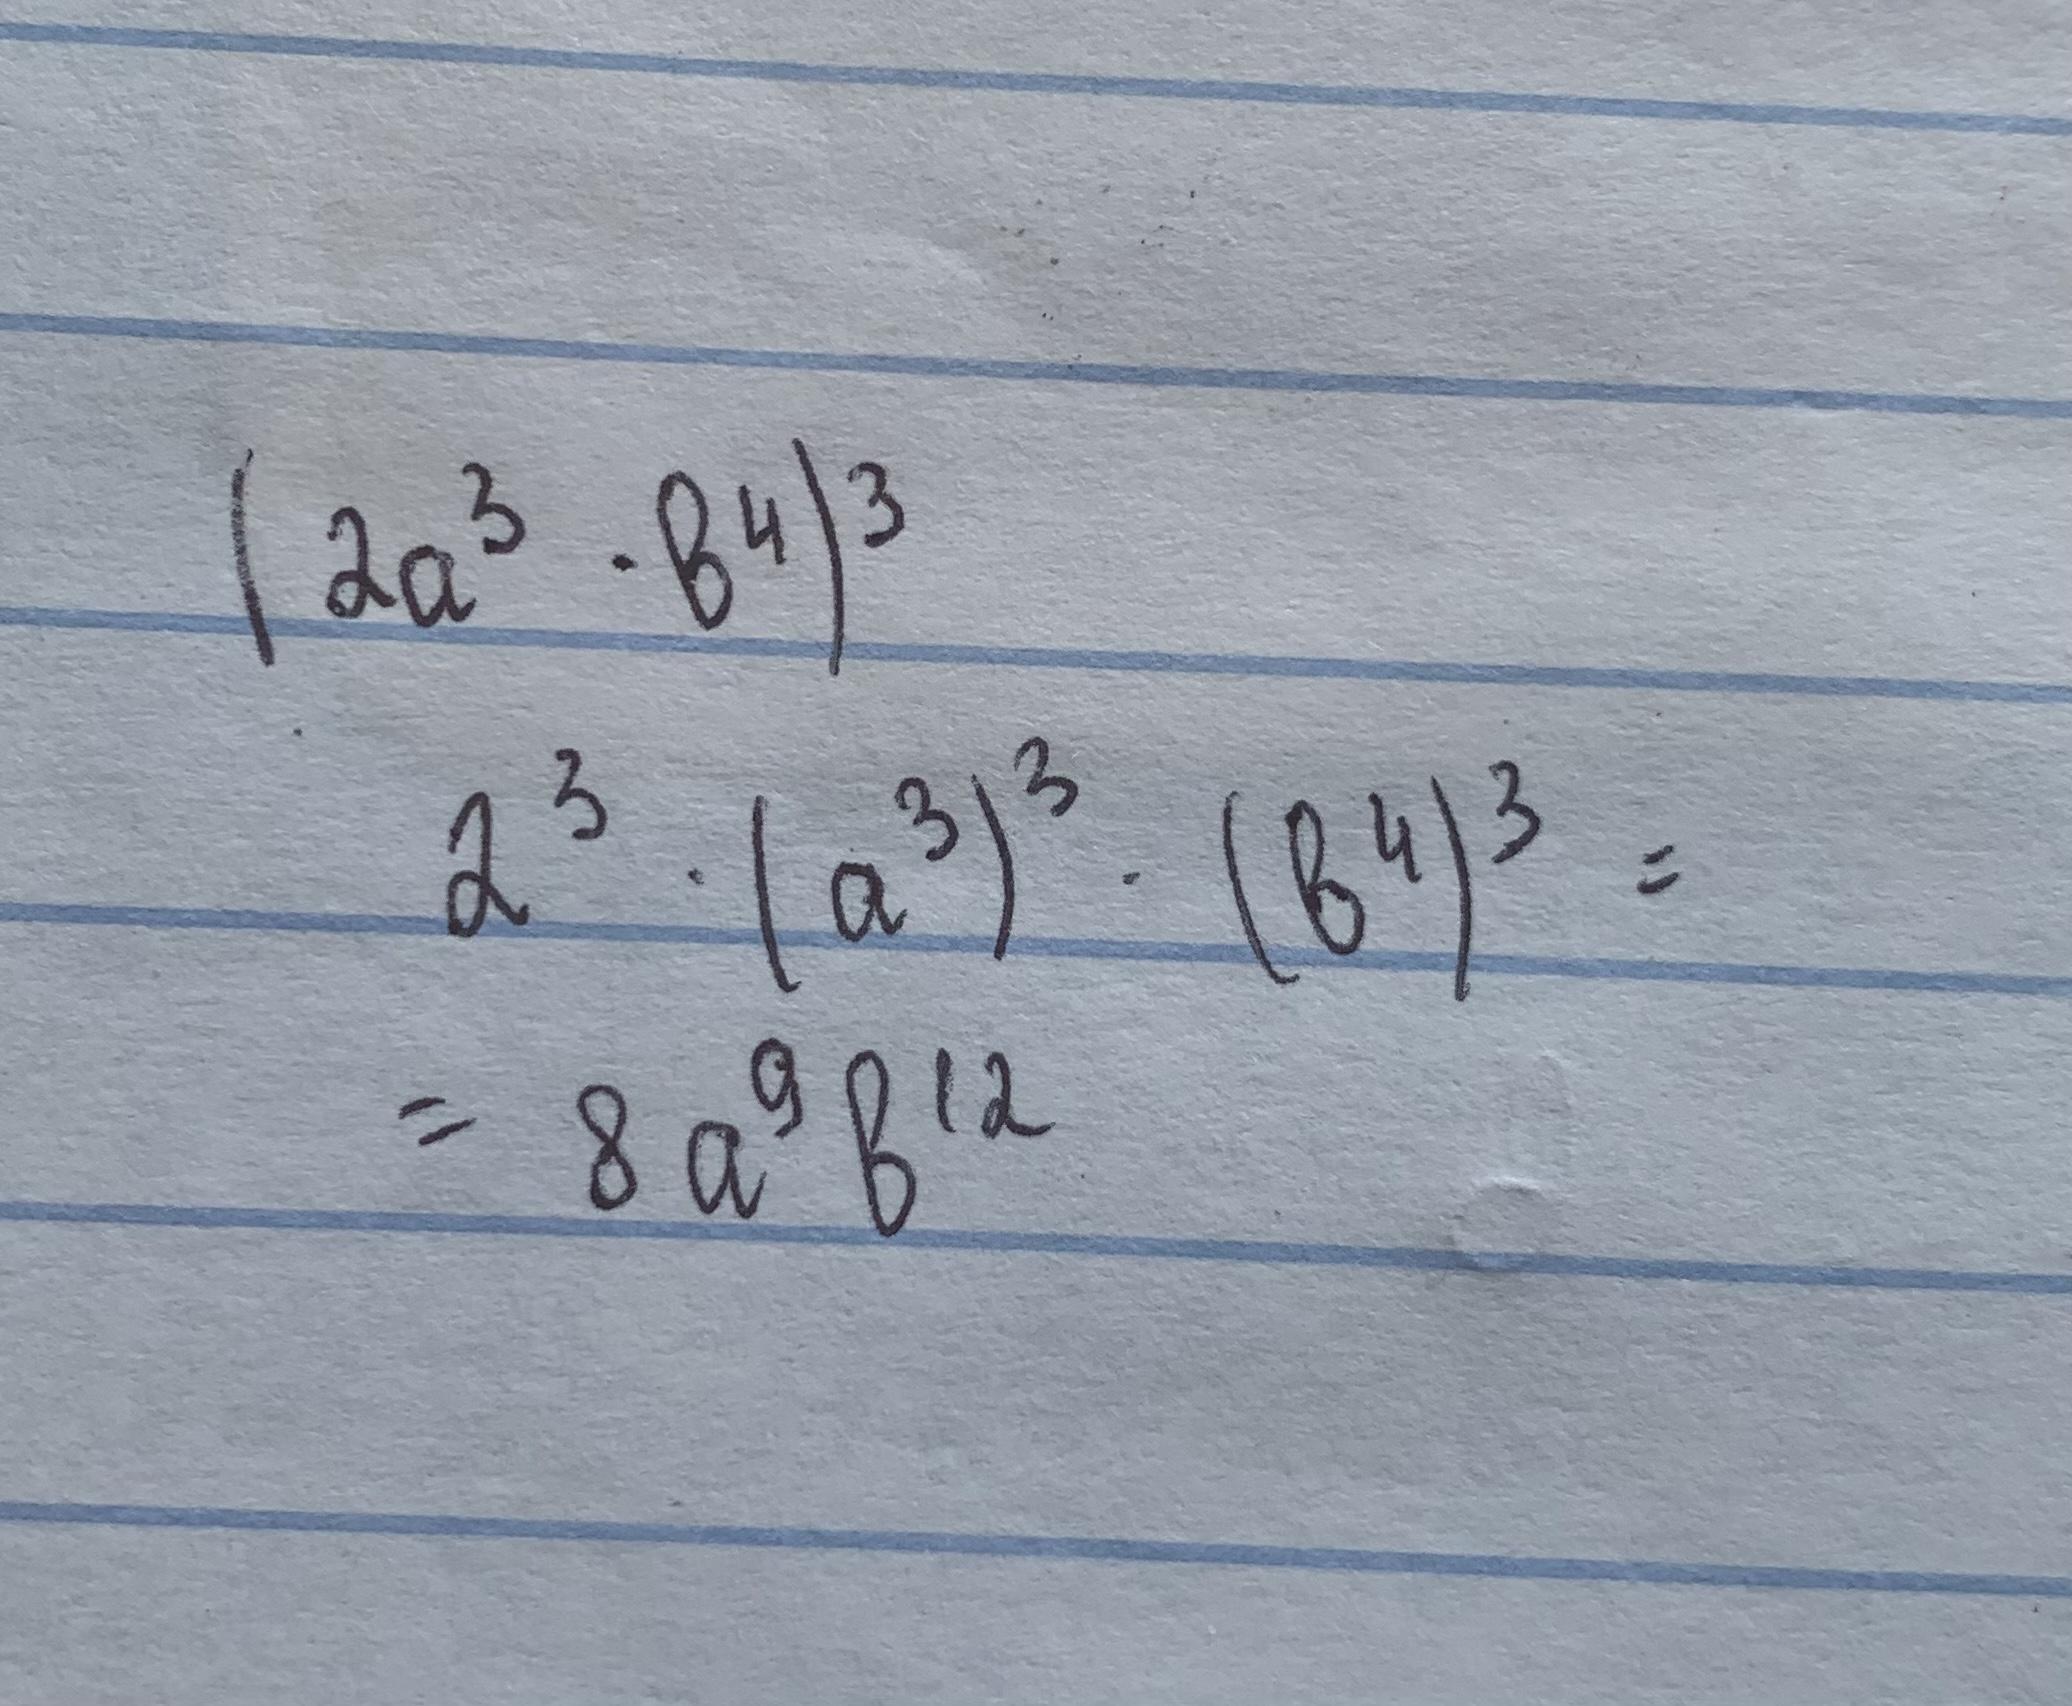 (2a³ · b⁴)³
2³ · (a³)³ · (b⁴)³ =
= 8a⁹b¹²